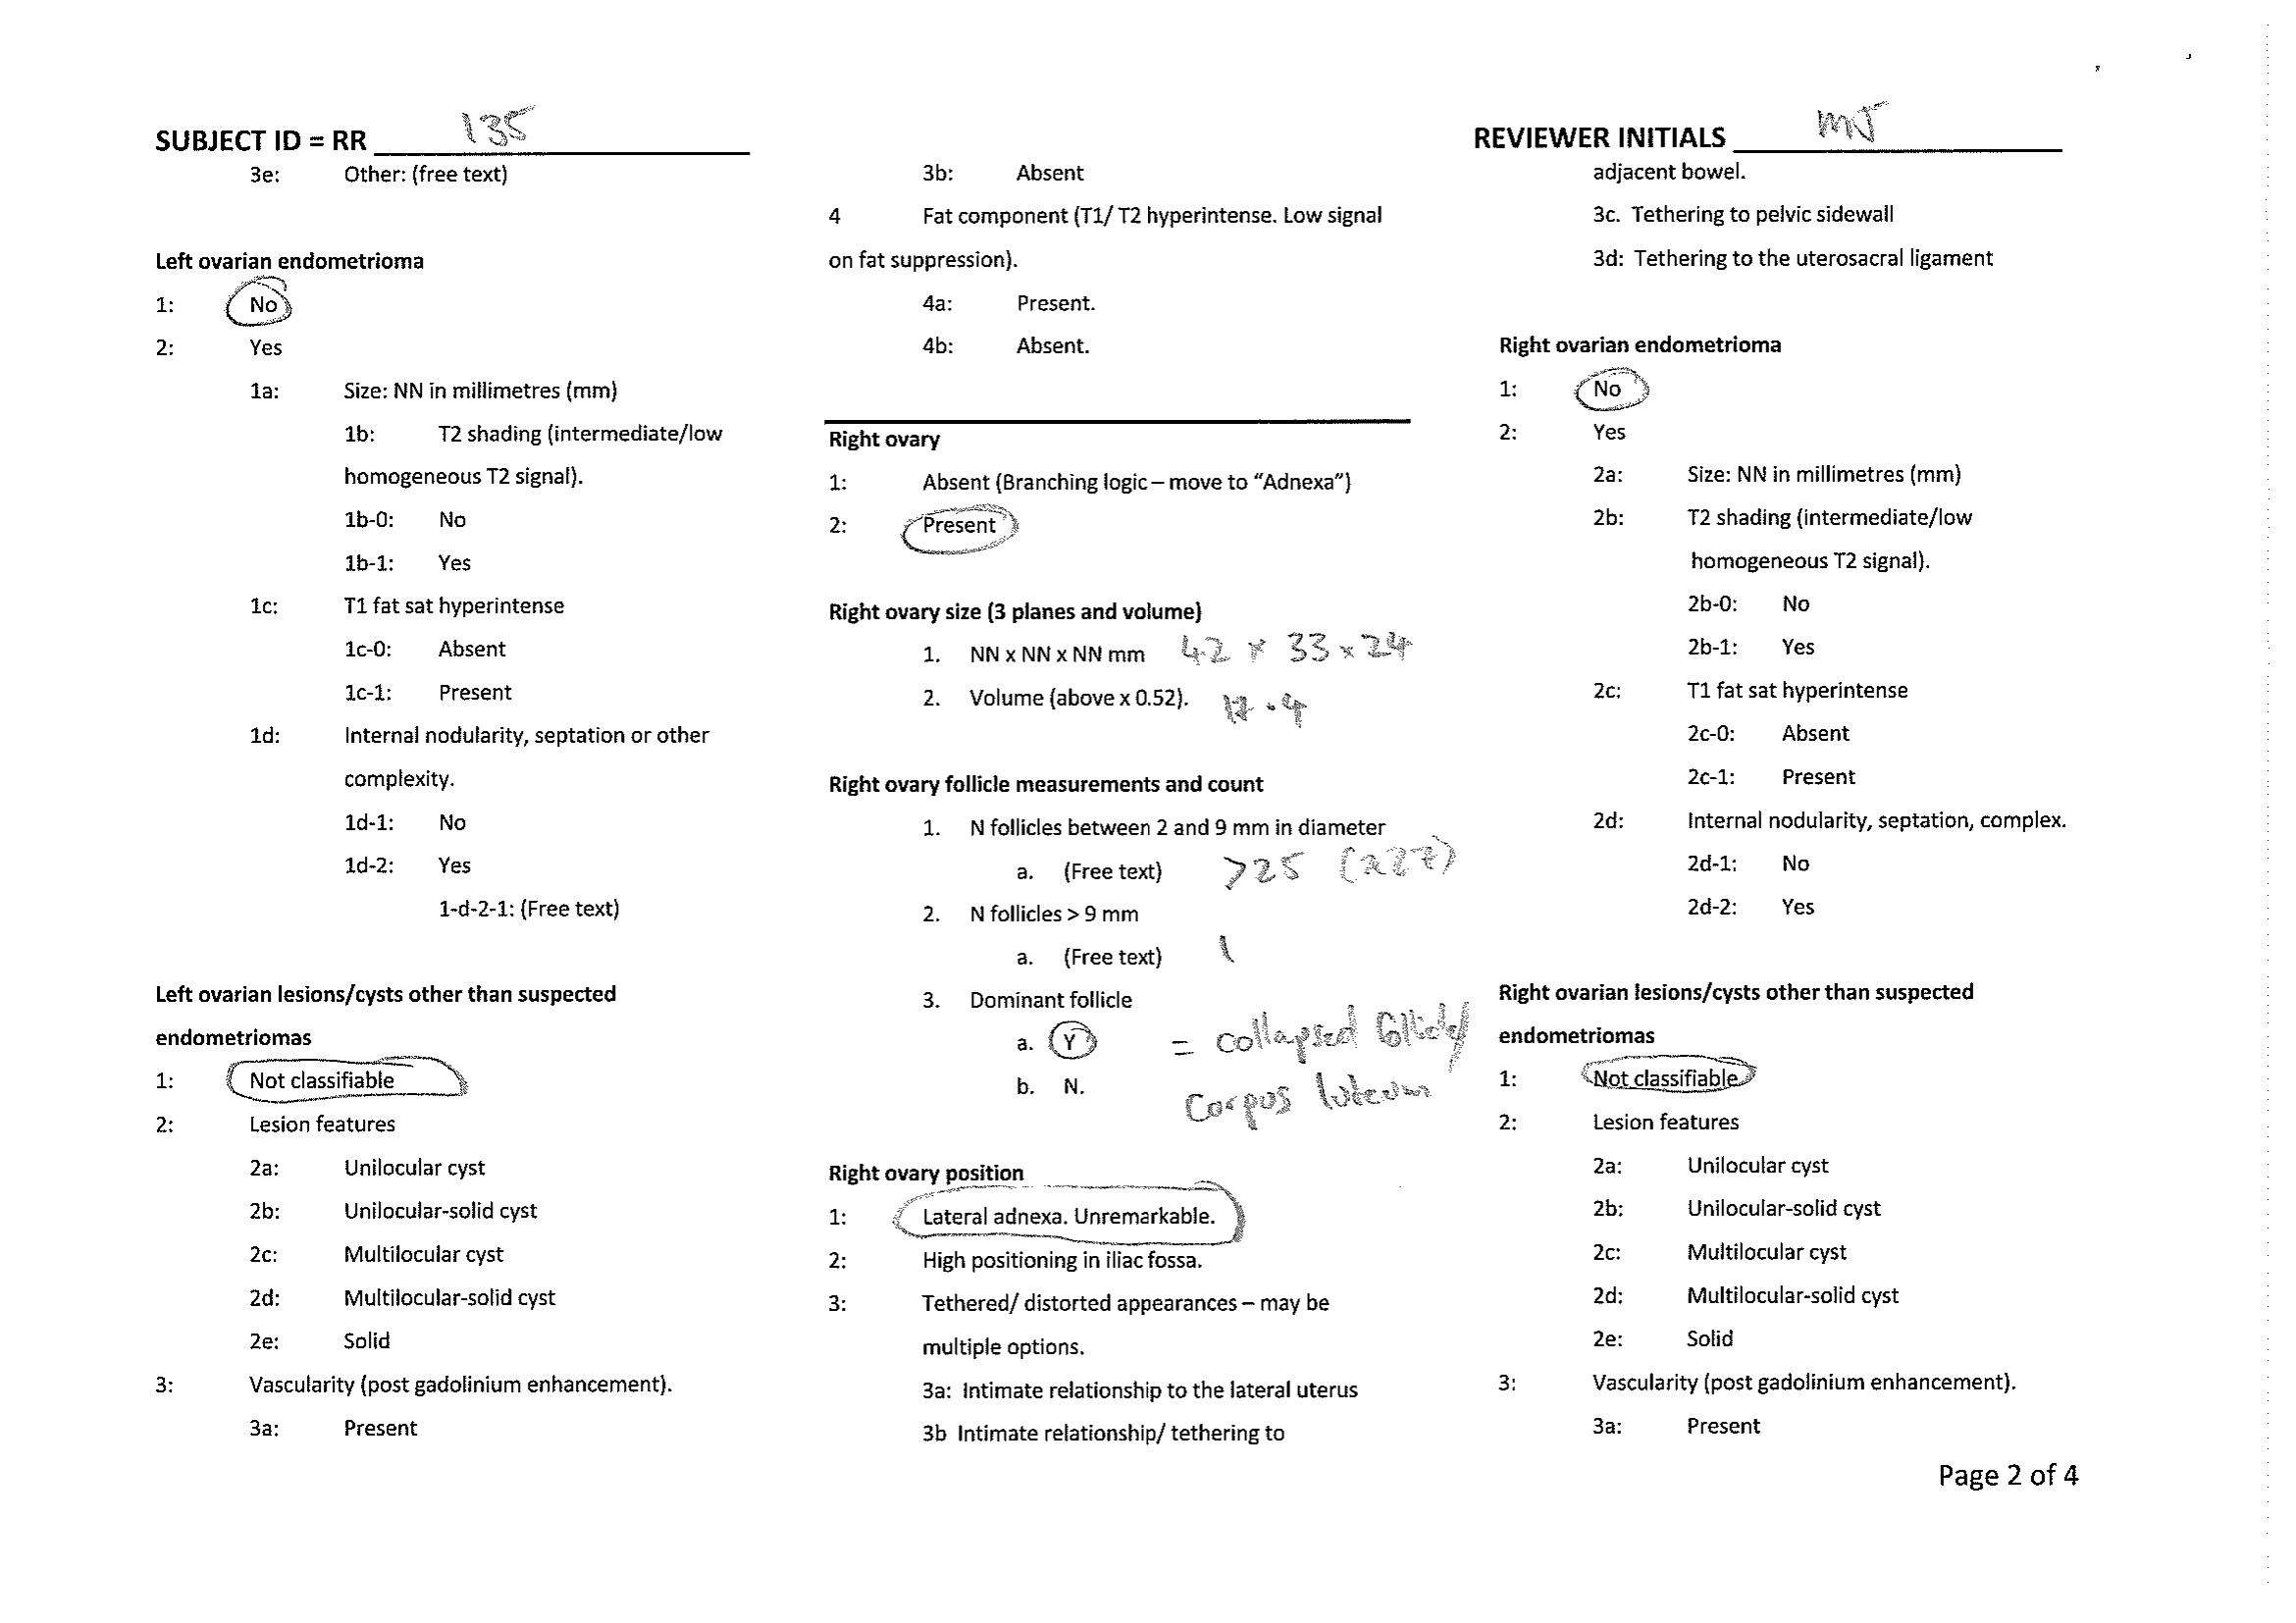 SUBJECT ID = RR 135
3e: Other: (free text)
Left ovarian endometrioma
1: No
2: Yes
1a: Size: NN in millimetres (mm)
1b: T2 shading (intermediate/low
homogeneous T2 signal).
1b-0: No
1b-1: Yes
1c: T1 fat sat hyperintense
1c-0: Absent
1c-1: Present
1d: Internal nodularity, septation or other
complexity.
1d-1: No
1d-2: Yes
1-d-2-1: (Free text)
Left ovarian lesions/cysts other than suspected
endometriomas
1: Not classifiable
2: Lesion features
2a: Unilocular cyst
2b: Unilocular-solid cyst
2c: Multilocular cyst
2d: Multilocular-solid cyst
2e: Solid
3: Vascularity (post gadolinium enhancement).
3a: Present
3b: Absent
4 Fat component (T1/ T2 hyperintense. Low signal
on fat suppression).
4a: Present.
4b: Absent.
Right ovary
1: Absent (Branching logic – move to “Adnexa”)
2: Present
Right ovary size (3 planes and volume)
1. NN x NN x NN mm 42 x 33 x 24
2. Volume (above x 0.52). 17.4
Right ovary follicle measurements and count
1. N follicles between 2 and 9 mm in diameter
a. (Free text) >25 (27)
2. N follicles > 9 mm
a. (Free text) 1
3. Dominant follicle
a. Y = collapsed follicle/
b. N. corpus luteum
Right ovary position
1: Lateral adnexa. Unremarkable.
2: High positioning in iliac fossa.
3: Tethered/ distorted appearances – may be
multiple options.
3a: Intimate relationship to the lateral uterus
3b Intimate relationship/ tethering to
REVIEWER INITIALS MJ
adjacent bowel.
3c. Tethering to pelvic sidewall
3d: Tethering to the uterosacral ligament
Right ovarian endometrioma
1: No
2: Yes
2a: Size: NN in millimetres (mm)
2b: T2 shading (intermediate/low
homogeneous T2 signal).
2b-0: No
2b-1: Yes
2c: T1 fat sat hyperintense
2c-0: Absent
2c-1: Present
2d: Internal nodularity, septation, complex.
2d-1: No
2d-2: Yes
Right ovarian lesions/cysts other than suspected
endometriomas
1: Not classifiable
2: Lesion features
2a: Unilocular cyst
2b: Unilocular-solid cyst
2c: Multilocular cyst
2d: Multilocular-solid cyst
2e: Solid
3: Vascularity (post gadolinium enhancement).
3a: Present
Page 2 of 4